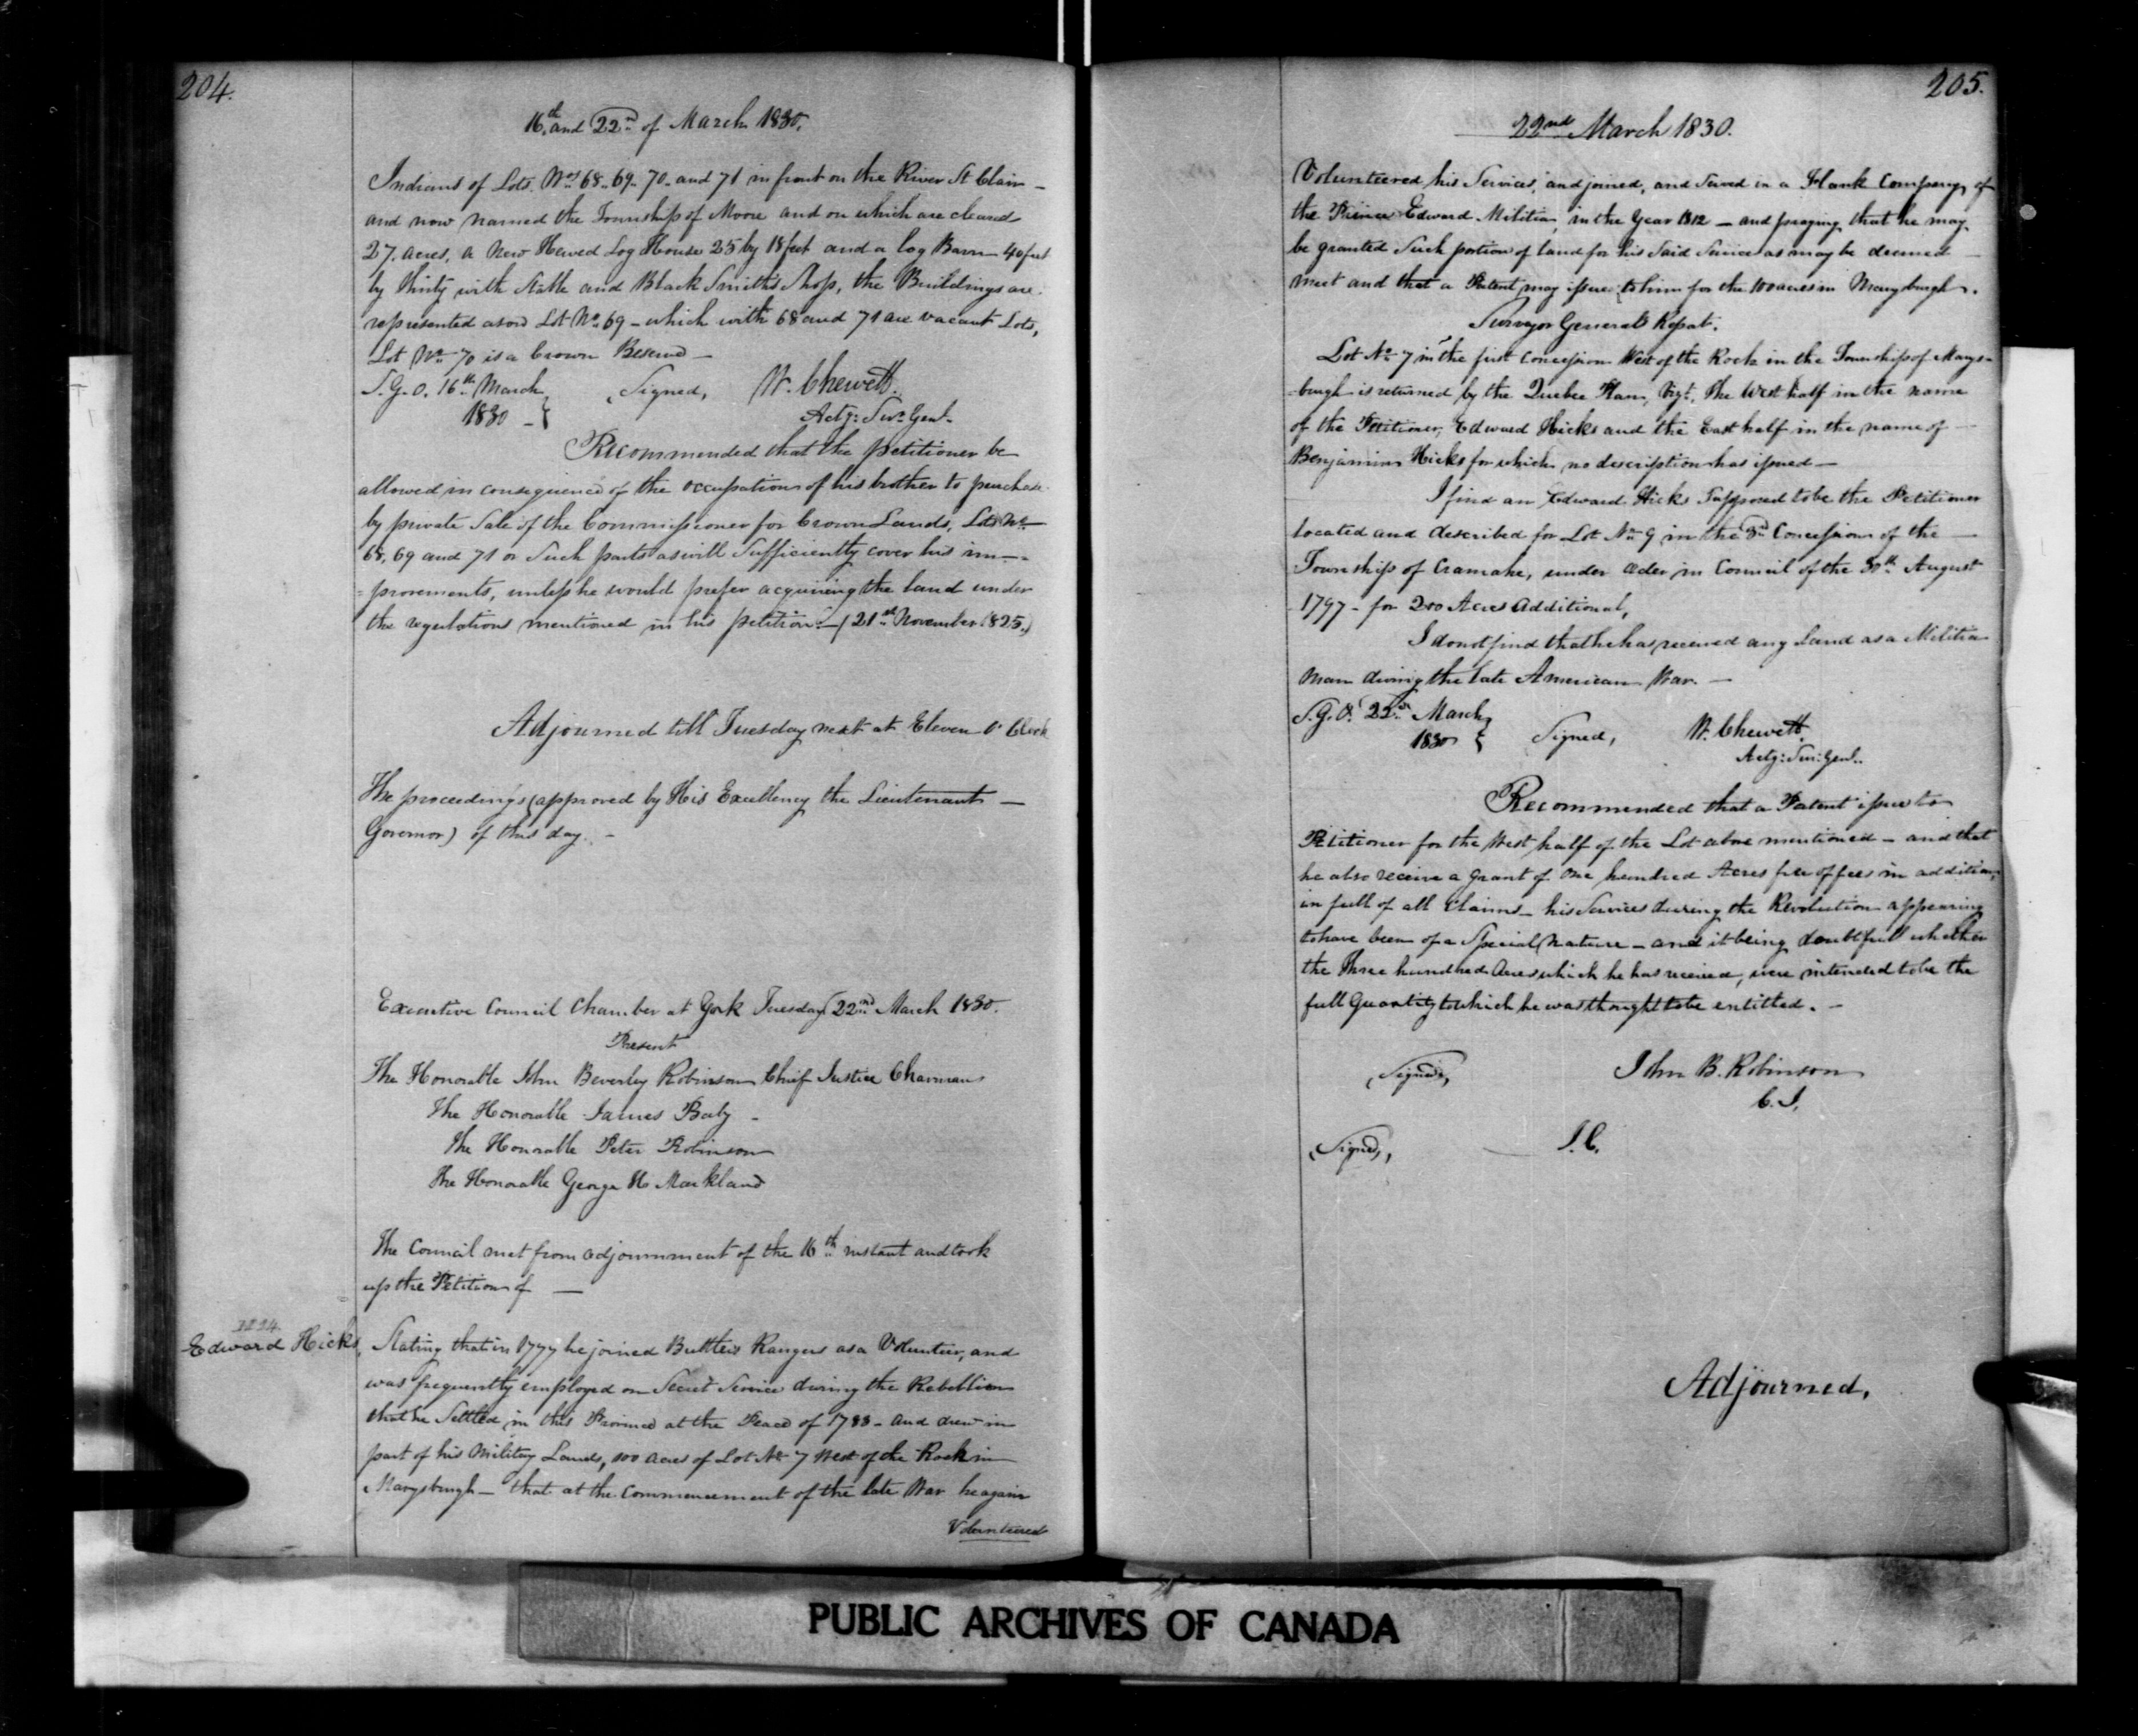 204.
16th and 22nd of March 1830.
Indians of Lots. Nos 68. 69. 70. and 71 in front on the River St Clair –
and now named the Township of Moore and on which are cleared
27. acres, a New Hewed Log House 25 by 18 feet and a log Barn 40 feet
by thirty with Stable and Black Smith's Shop, the Buildings are
represented as on Lot No. 69 – which with 68 and 71 are vacant Lots,
Lot No. 70 is a Crown Reserve –
S.G.O. 16th March
1830 –
Signed, W. Chewett.
Actg: Sur. Genl.
Recommended that the petitioner be
allowed in consequence of the occupation of his brother to purchase
by private Sale of the Commissioner for Crown Lands, Lots No.
68, 69 and 71 or Such parts as will Sufficiently cover his im-
=provements, unless he would prefer acquiring the land under
the regulations mentioned in his petition. – (21st November 1825.)
Adjourned till Tuesday next at Eleven O'Clock
The proceedings (approved by His Excellency the Lieutenant –
Governor) of this day. –
Executive Council Chamber at York Tuesday 22nd March 1830.
Present
The Honorable John Beverley Robinson Chief Justice Chairman
The Honorable James Baby –
The Honorable Peter Robinson
The Honorable George H Markland
The Council met from adjournment of the 16th instant and took
up the Petition of —
Edward Hicks,
Stating that in 1777 he joined Buttlers Rangers as a Volunteer, and
was frequently employed on Secret Service during the Rebellion
that he Settled in this Province at the Peace of 1783 – and drew in
part of his Military Lands, 100 acres of Lot No. 7 West of the Rock in
Marysburgh – that at the Commencement of the late War he again
Volunteered
205.
22nd March 1830.
Volunteered his Services, and joined, and Served in a Flank Company of
the Prince Edward Militia, in the Year 1812 – and praying that he may
be granted Such portion of land for his Said Service as may be deemed
meet and that a Patent may issue to him for the 100 acres in Marysburgh.
Surveyor General's Report.
Lot No. 7 in the first Concession West of the Rock in the Township of Marys-
-burgh is returned by the Quebec Plan, Vizt. The West half in the name
of the Petitioner, Edward Hicks and the East half in the name of
Benjamin Hicks for which no description has issued –
I find an Edward Hicks Supposed to be the Petitioner
located and described for Lot No. 9 in the 3d Concession of the
Township of Cramahe, under Order in Council of the 30th August
1797 – for 200 Acres Additional,
I do not find that he has received any Land as a Militia
Man during the late American War. –
S.G.O. 22nd March
1830
Signed, W. Chewett.
Actg: Sur: Genl.
Recommended that a Patent issue to
Petitioner for the West half of the Lot above mentioned – and that
he also receive a grant of One hundred Acres free of fees in addition,
in full of all Claims – his Services during the Revolution appearing
to have been of a Special Nature – and it being doubtfull whether
the three hundred Acres which he has received, were intended to be the
full Quantity to which he was thought to be entitled. –
(Signed), John B. Robinson
C.J.
(Signed), J.C.
Adjourned.
PUBLIC ARCHIVES OF CANADA